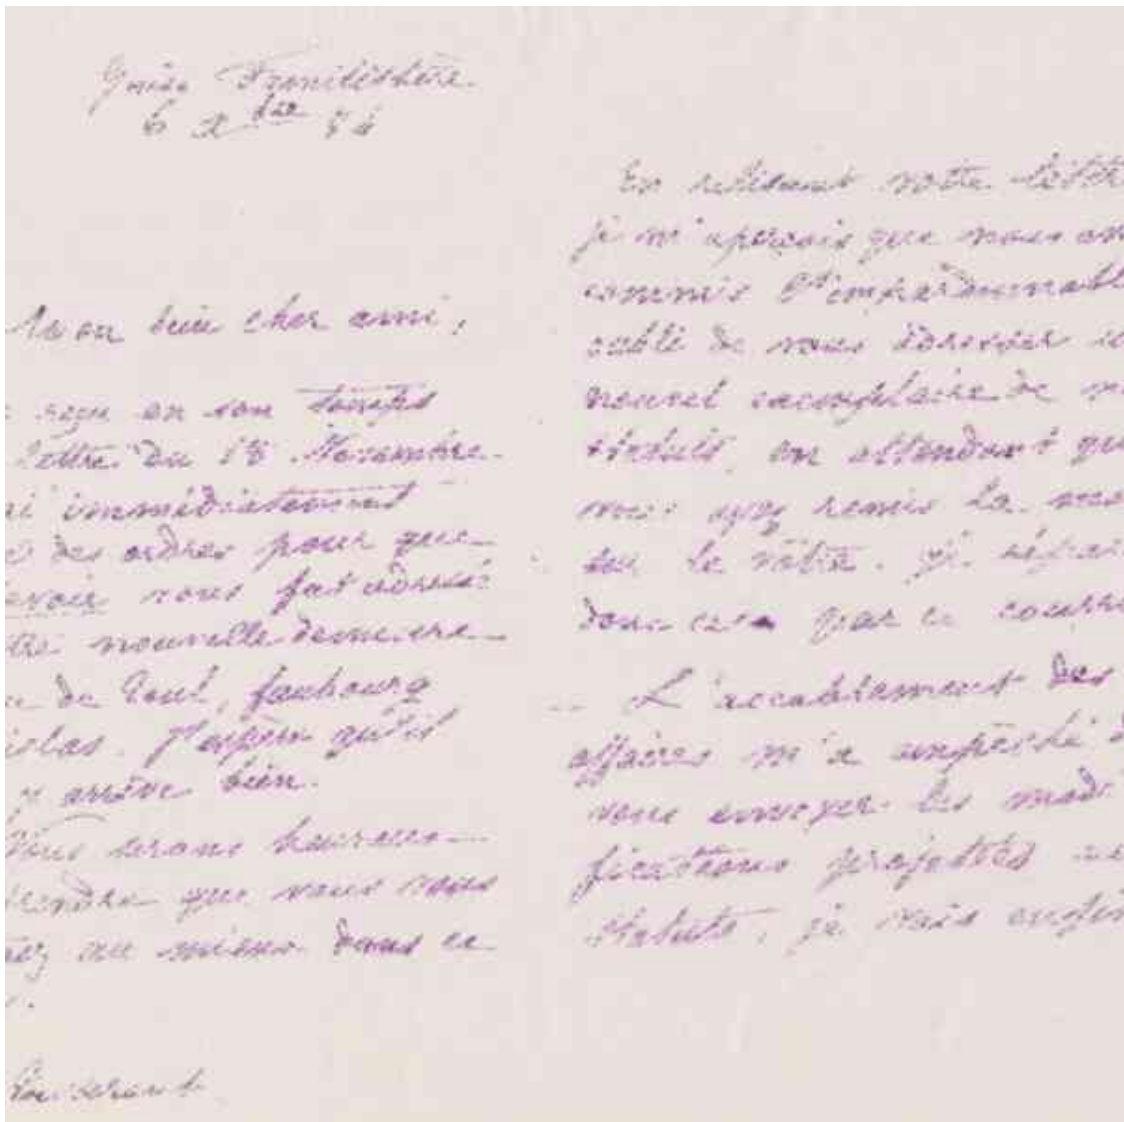 Guise Familistère
6 Xbre 84
Mon bien cher ami,
reçu en son temps
lettre du 18 Novembre.
ai immédiatement
des ordres pour que
evoir vous fut adressé
nouvelle demeure
de Toul, faubourg
icolas. J'espère qu'il
y arrive bien.
Nous serons heureux
rendre que vous vous
ez au mieux dans ce
En relisant notre lettre
je m'aperçois que nous av
commis l'impardonnabl
oubli de vous adresser u
nouvel exemplaire de n
statuts, en attendant que
vous ayez remis la
sur le nôtre. Je répar
donc ce par ce courri
L'accablement des
affaires m'a empêché d
vous envoyer les modi
fications projetées
statuts, je vais enfin